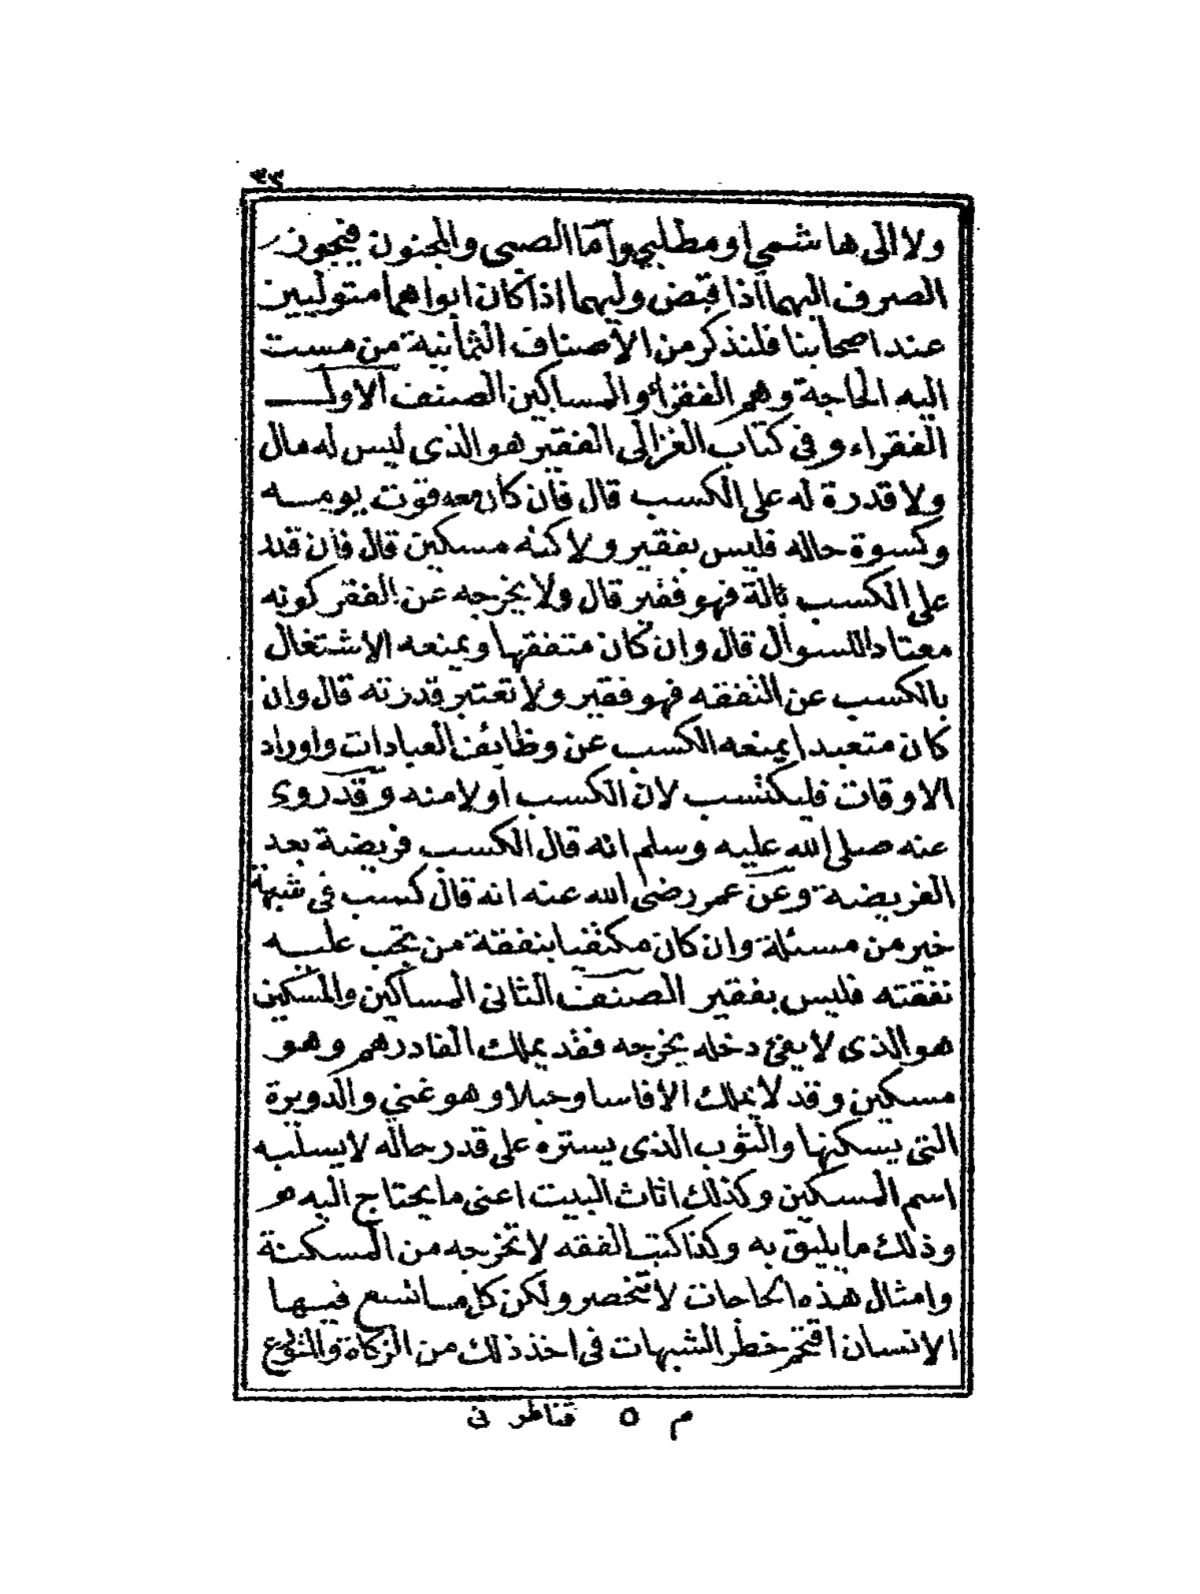 ٣٣
ولا الى هاشمي او مطلبي واما الصبى والمجنون فيجوز
الصرف اليهما اذا قبض وليهما اذا كان ابواهما متوليين
عند اصحابنا فلنذكر من الاصناف الثمانية من مست
اليه الحاجة وهم الفقراء والمساكين الصنف الاول
الفقراء وفي كتاب الغزالى الفقير هو الذى ليس له مال
ولا قدرة له على الكسب قال فان كان معه قوت يومه
وكسوة حاله فليس بفقير ولاكنه مسكين قال فان قدر
على الكسب بالة فهو فقير قال ولا يخرجه عن الفقر كونه
معتادا للسوال قال وان كان متفقها ويمنعه الاشتغال
بالكسب عن التفقه فهو فقير ولا تعتبر قدرته قال وان
كان متعبدا يمنعه الكسب عن وظائف العبادات واوراد
الاوقات فليكتسب لان الكسب اولا منه وقد روى
عنه صلى الله عليه وسلم انه قال الكسب فريضة بعد
الفريضة وعن عمر رضى الله عنه انه قال كسب فى شبهة
خير من مسئلة وان كان مكتفيا بنفقة من تجب عليه
نفقته فليس بفقير الصنف الثانى المساكين والمسكين
هو الذى لا يفئ دخله بخرجه فقد يملك الفا درهم وهو
مسكين وقد لا يملك الا فاسا وحبلا وهو غني والدويرة
التى يسكنها والثوب الذى يستره على قدر حاله لا يسلبه
اسم المسكين وكذلك اثاث البيت اعنى ما يحتاج اليه هو
وذلك ما يليق به وكذا كتب الفقه لا تخرجه من المسكنة
وامثال هذه الحاجات لا تنحصر ولكن كل ما اتسع فيها
الانسان اقتحم خطر الشبهات فى اخذ ذلك من الزكاة والتورع
م ٥ قناطر نى